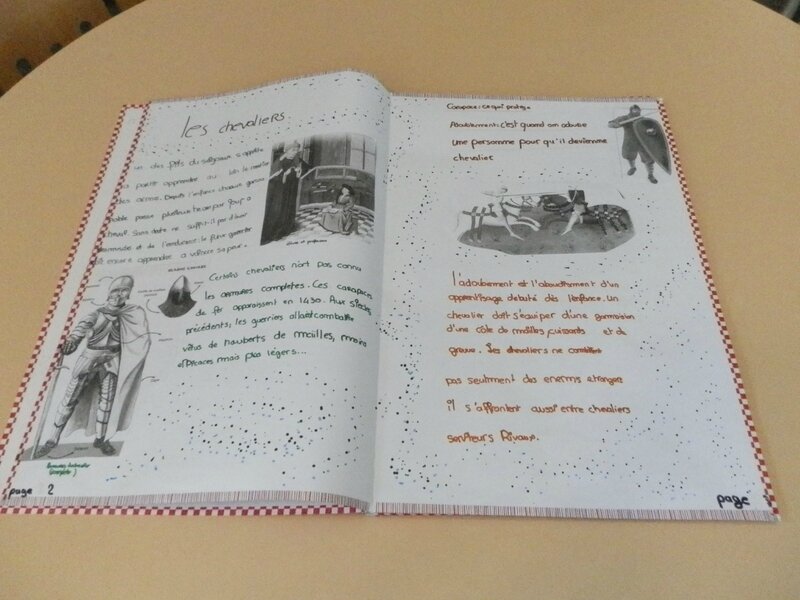 les chevaliers
un des fils du seigneur s'appelle
a partir apprendre au loin le metier
des arme. Depuis l'enfance chaque garçon
noble passe plusieurs heures par jour a
cheval. Sans doute ne suffit-il pas d'avoir
et de l'endurance: le futur guerrier
ensuite apprendre a vaincre sa peur.
élève et professeur
Certains chevaliers n'ont pas connu
les armures completes. Ces carapaces
de fer apparaissent en 1430. Aux siècles
précédents, les guerriers allaient combattre
vêtus de hauberts de mailles, moins
efficaces mais plus légers...
page 2
Carapace: ce qui protège
Adoubement: c'est quand on adoube
une personne pour qu'il devienne
chevalier
l'adoubement est l'aboutissement d'un
apprentissage debuté dès l'enfance. Un
chevalier doit s'equiper d'une
d'une côte de mailles, cuissards et de
greuve. Les chevaliers ne combattent
pas seulment des enemis etrangers
il s'affrontent aussi entre chevaliers
seniteurs Rivaux.
page